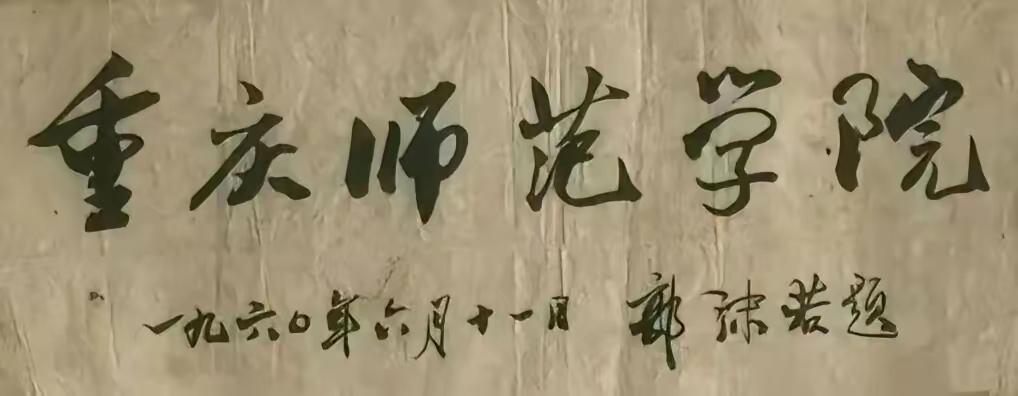 重庆师范学院
一九六〇年六月十一日 郭沫若题